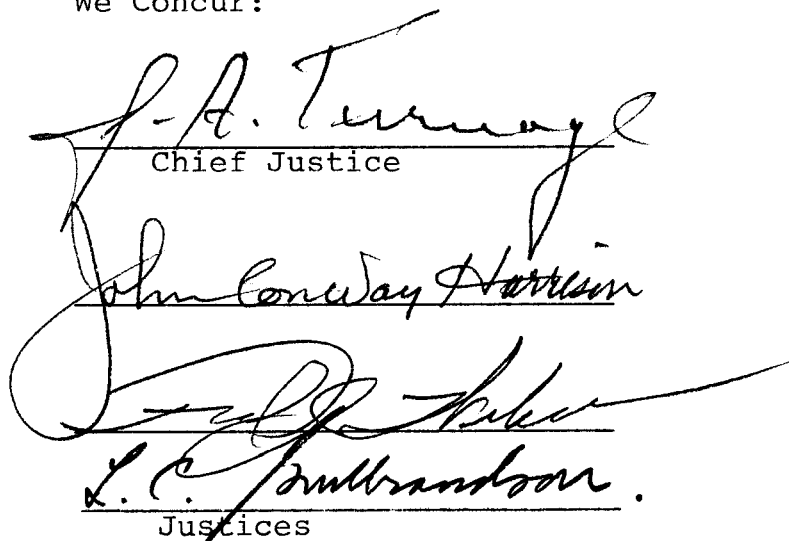 We Concur:
J. A. Turnage
Chief Justice
John Conway Harrison
L. C. Gulbrandson.
Justices